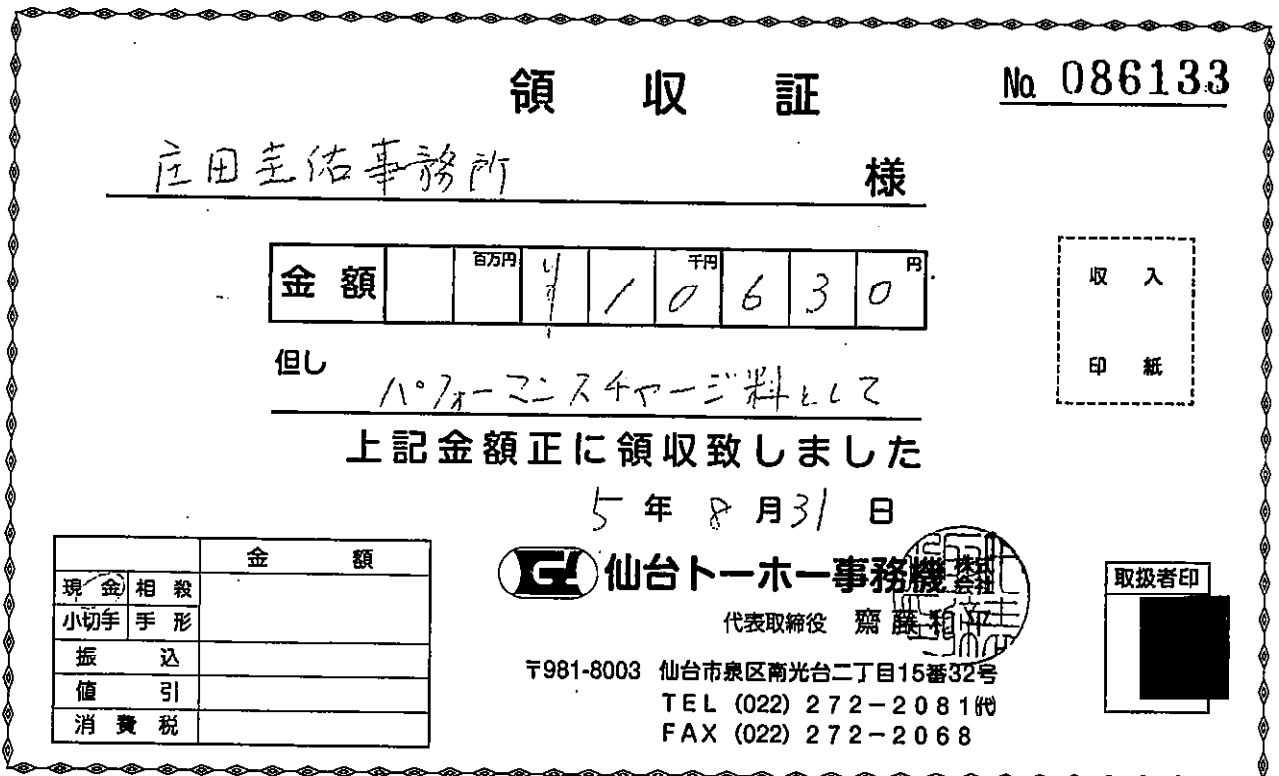 領収証
No. 086133
庄田圭佑事務所 様
金額 百万円 千円 円
¥10630
但し パフォーマンスチャージ料として
上記金額正に領収致しました
5年8月31日
収入
印紙
金額
現金 相殺
小切手 手形
振込
値引
消費税
仙台トーホー事務機株式会社
代表取締役 齋藤和平
〒981-8003 仙台市泉区南光台二丁目15番32号
TEL (022) 272-2081㈹
FAX (022) 272-2068
取扱者印